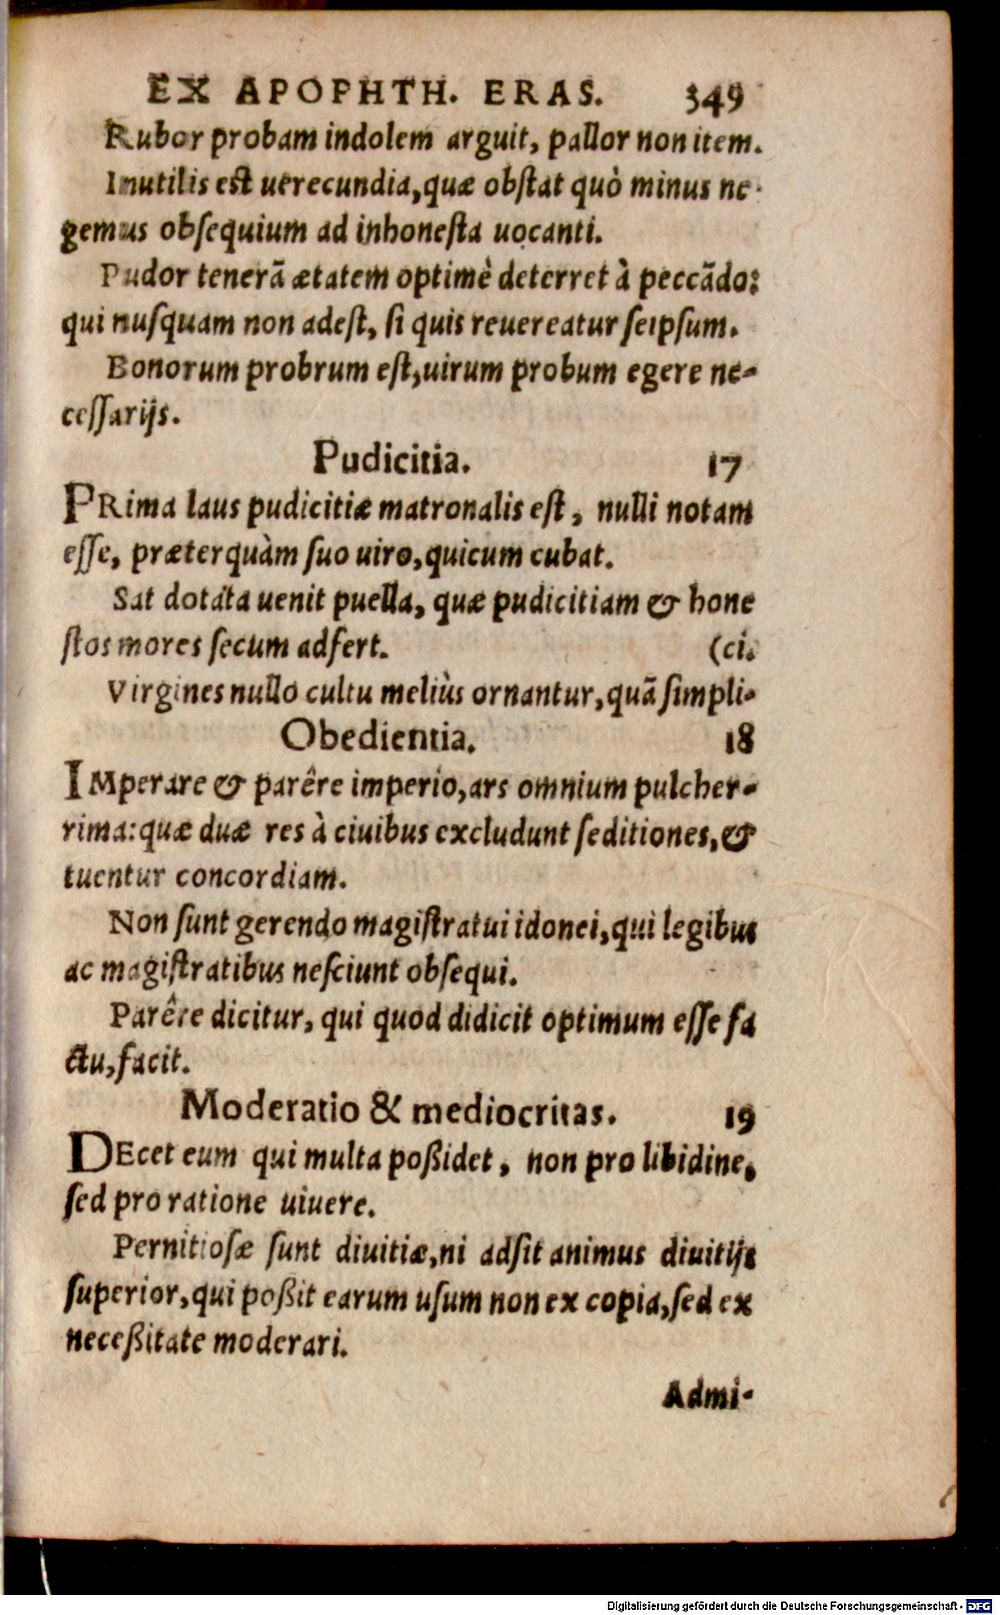 EX APOPHTH. ERAS. 349
Rubor probam indolem arguit, pallor non item.
Inutilis est uerecundia, quæ obstat quò minus ne-
gemus obsequium ad inhonesta uocanti.
Pudor tenerã ætatem optimè deterret à peccãdo:
qui nusquam non adest, si quis reuereatur seipsum.
Bonorum probrum est, uirum probum egere ne-
cessarijs.
Pudicitia. 17
PRima laus pudicitiæ matronalis est, nulli notam
esse, præterquàm suo uiro, quicum cubat.
Sat dotata uenit puella, quæ pudicitiam & hone
stos mores secum adfert. (ci.
Virgines nullo cultu meliùs ornantur, quã simpli-
Obedientia. 18
IMperare & parêre imperio, ars omnium pulcher-
rima: quæ duæ res à ciuibus excludunt seditiones, &
tuentur concordiam.
Non sunt gerendo magistratui idonei, qui legibus
ac magistratibus nesciunt obsequi.
Parêre dicitur, qui quod didicit optimum esse fa
ctu, facit.
Moderatio & mediocritas. 19
DEcet eum qui multa poßidet, non pro libidine,
sed pro ratione uiuere.
Pernitiosæ sunt diuitiæ, ni adsit animus diuitijs
superior, qui poßit earum usum non ex copia, sed ex
neceßitate moderari.
Admi-
Digitalisierung gefördert durch die Deutsche Forschungsgemeinschaft - DFG